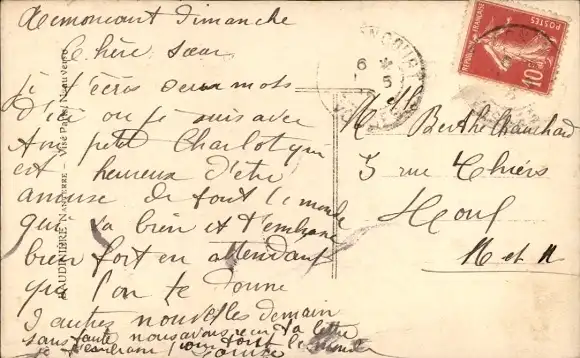 Remoncourt Dimanche
Chère sœur
je t'écris deux mots
d'ici ou je suis avec
mon petit Charlot qui
est heureux d'être
amusé de tout le monde
qui va bien et t'embrasse
bien fort en attendant
que l'on te donne
d'autres nouvelles demain
sans faute nous avons reçu ta lettre
je t'embrasse pour tout le monde
BAUDINIÈRE NANTERRE - Visé Paris, Numéro verso
POSTES
REPUBLIQUE FRANÇAISE
10
6
5
Mlle Berthe Chanchard
5 rue Thiers
Toul
M et M